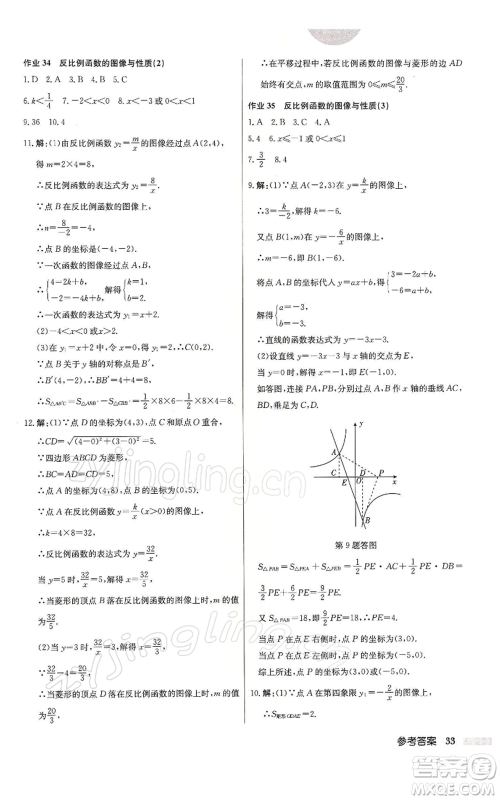 作业 34 反比例函数的图像与性质(2)
1. D 2. A 3. D 4. D 5. D
6. k<1/4 7. -2<x<0 8. x<-3 或 0<x<3
9. 36 10. 4
11. 解:(1)由反比例函数 y₂=m/x 的图像经过点 A(2,4),
得 m=2×4=8,
∴反比例函数的表达式为 y₂=8/x.
∵点 B 在反比例函数的图像上,
∴n=8/-2=-4,
∴点 B 的坐标是(-4,-2).
∵一次函数的图像经过点 A,B,
∴{4=2k+b, -2=-4k+b; 解得{k=1, b=2;
∴一次函数的表达式为 y₁=x+2.
(2)-4<x<0 或 x>2.
(3)在 y₁=x+2 中,令 x=0,得 y₁=2,
∴C(0,2).
∵点 B 关于 y 轴的对称点是 B′,
∴B′(4,-2),∴BB′=4+4=8,
12. 解:(1)∵点 D 的坐标为(4,3),点 C 和原点 O 重合,
∴CD=√((4-0)²+(3-0)²)=5.
∵四边形 ABCD 为菱形,
∴AD=CD=5,
∴点 A 的坐标为(4,8),点 B 的坐标为(0,5).
∵点 A 在反比例函数 y=k/x (x>0)的图像上,
∴k=4×8=32,
∴反比例函数的表达式为 y=32/x.
当 y=5 时,5=32/x,解得 x=32/5,
∴当菱形的顶点 B 落在反比例函数的图像上时,m 的值
为 32/5.
(2)当 y=3 时,3=32/x,解得 x=32/3.
∵32/3-4=20/3,
∴当菱形的顶点 D 落在反比例函数的图像上时,m 的值
为 20/3,
∴在平移过程中,若反比例函数的图像与菱形的边 AD
始终有交点,m 的取值范围为 0≤m≤20/3.
作业 35 反比例函数的图像与性质(3)
1. A 2. B 3. C 4. A
5. 4 6. x≤-1 或 0<x≤2
7. 3/2 8. 4
9. 解:(1)∵点 A(-2,3)在 y=k/x 的图像上,
∴3=k/-2,解得 k=-6.
又点 B(1,m)在 y=-6/x 的图像上,
∴m=-6,即 B(1,-6).
将点 A,B 的坐标代入 y=ax+b,得{3=-2a+b, -6=a+b,
解得{a=-3, b=-3,
∴直线的函数表达式为 y=-3x-3.
(2)设直线 y=-3x-3 与 x 轴的交点为 E,
当 y=0 时,-3x-3=0,解得 x=-1,即 E(-1,0).
如答图,连接 PA,PB,分别过点 A,B 作 x 轴的垂线
AC,BD,垂足分别为 C,D.
y
A
C
O
D
P
x
B
第 9 题答图
S△PAB=S△PEA+S△PEB=1/2 PE·AC+1/2 PE·DB=
3/2 PE+6/2 PE=9/2 PE.
又∵S△PAB=18,即 9/2 PE=18,∴PE=4.
当点 P 在点 E 右侧时,点 P 的坐标为(3,0);
当点 P 在点 E 左侧时,点 P 的坐标为(-5,0).
综上所述,点 P 的坐标为(3,0)或(-5,0).
10. 解:(1)∵点 A 在第四象限 y=-2/x 的图像上,
参考答案 33